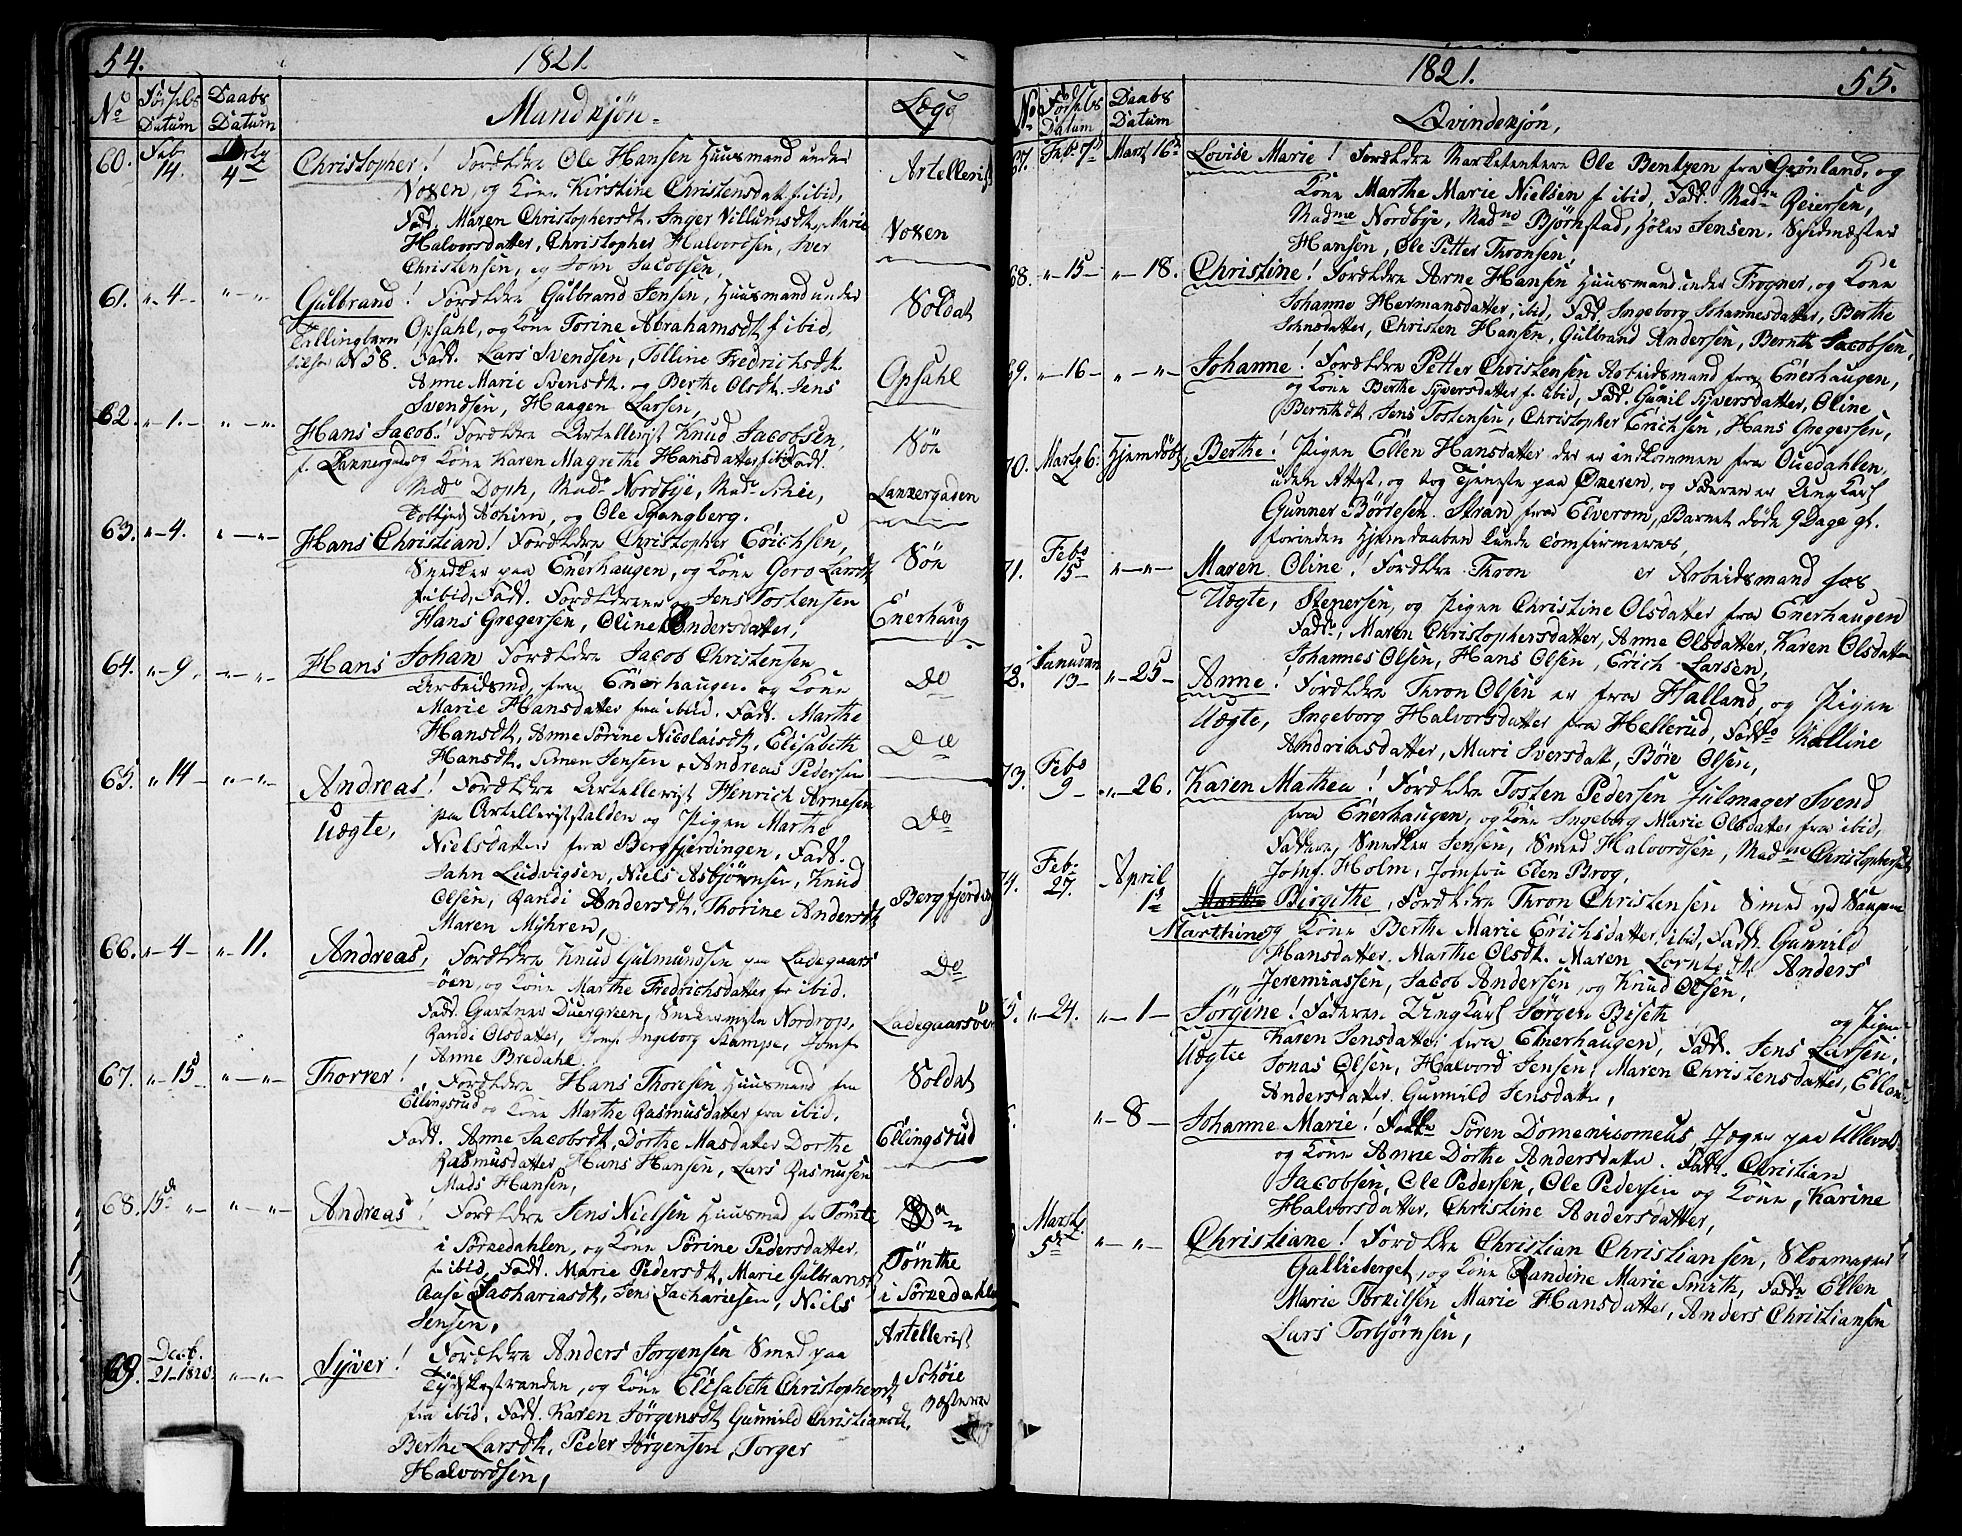 54.
1821.
No
Fødsels Datum
Daabs Datum
Mandkjøn
Lægd
60.
Feb. 14.
Martz 4
Christopher! Forældre Ole Hansen Huusmand under
Noxen, og Kone Kirstine Christensdat f. ibid,
Fad. Maren Christophersdt, Inger Villumsdt, Marie
Halvorsdatter, Christopher Halvordsen, Iver
Christensen, og John Jacobsen,
Artellerist
Noxen
61.
" - 4 -
" - " -
Gulbrand! Forældre Gulbrand Jensen, Huusmand under
Tvillingbarn Opsahl, og Kone Torine Abrahamsdt, f ibid,
N 58. Fad. Lars Svendsen, Tolline Fredrichsdt.
Anne Marie Svensdt. og Berthe Olsdt. Jens
Svendsen, Haagen Larsen,
Soldat
Opsahl
62.
" - 1. -
" - " -
Hans Jacob! Forældre Artellerist Knud Jacobsen,
f. Lakkergaden og Kone Karen Magrethe Hansdatter f ibid Fad.
Mad Doph, Mad Nordbye, Mad Schie,
og Ole Spangberg.
Søn
Lakkergaden
63.
" - 4.
" - " -
Hans Christian! Forældre Christopher Erichsen,
Snedker paa Enerhaugen, og Kone Goro Larsdt
f. ibid, Fad. Forældrene og Jens Tostensen
Hans Gregersen, Oline Andersdatter,
Søn
Enerhaug
64.
" - 9.
" - " -
Hans Johan Forældre Jacob Christensen
Arbeidsmd, fra Enerhaugen og Kone
Marie Hansdatter fra ibid. Fad. Marthe
Hansdt, Anne Sørine Nicolaisdt, Elisabeth
Hansdt. Simen Jensen, Andreas Pedersen
Do
Do
65.
" 14 -
" - " -
Andreas! Forældre Artellerist Henrich Arnesen
Uægte, paa Artelleristalden og Pigen Marthe
Nielsdatter fra Bergfjerdingen, Fad.
Jahn Ludvigsen, Niels Asbjørnsen, Knud
Olsen, Randi Andersdt. Thorine Andersdt
Maren Myhren,
Do
Bergfjerding
66.
" - 4 -
" - 11.
Andreas, Forældre Knud Gulmundsen paa Ladegaars
øen, og Kone Marthe Fredrichsdatter fr ibid.
Fad. Gartner Duergreen, Nordrop,
Randi Olsdatter, Jomf Ingeborg Kampe, Jomf
Anne Bredahl
Do
Ladegaarsøen
67.
" - 15 -
" - " -
Thorrer! Forældre Hans Thoresen Huusmand fra
Ellingsrud og Kone Marthe Rasmusdatter fra ibid.
Fad. Anne Jacobsdt, Dorthe Masdatter Dorthe
Rasmusdatter, Hans Hansen, Lars Rasmusen
Mads Hansen,
Soldat
Ellingsrud
68.
15d " -
" - " -
Andreas! Forældre Jens Nielsen Huusmad fr Tømte
i Sørkedahlen, og Kone Sørine Pedersdatter,
fr ibid, Fad. Marie Pedersdt, Marie Gulbransdt
Aase Zachariasdt, Jens Zachariesen, Niels
Jensen,
Do
Tømthe
i Sørkedahlen
69.
Decb. 21 - 1820.
" - " -
Syver! Forældre Anders Jorgensen Smed paa
Tyskestranden, og Kone Elisabeth Christophersdt
fra ibid. Fad. Karen Jørgensdt, Gunnild Christiansdt,
Berthe Larsdt. Peder Jørgensen, Torger
Halvordsen,
Artellerist
Schøie
1821.
55.
No
Fødsels Datum
Daabs Datum
Qvindekjøn,
67.
Feb. 7d
Martz 16
Lovise Marie! Forældre Marketenter Ole Bentzen fra Grønland, og
Kone Marthe Marie Nielsen f ibid, Fad. Madm Reiersen,
Madme Nordbye, Madme Bjørnstad, Jensen,
Hansen, Ole Petter Thronsen,
68.
" - 15 -
" - 18.
Christine! Forældre Arne Hansen Huusmand under Frogner, og Kone
Johanne Hermansdatter, ibid, Fad. Ingeborg Johannesdatter, Berthe
Johnsdatter, Christen Hansen, Gulbrand Andersen, Bernth Jacobsen,
69.
" - 16 -
" - " -
Johanne! Forældre Petter Christensen Arbeidsmand fra Enerhaugen,
og Kone Berthe Syversdatter fr. ibid, Fad. Gunil Syversdatter, Oline
Berntsdt. Jens Tostensen, Christopher Erichsen, Hans Gregersen,
70.
Martz 6.
Hjemdøbt
Berthe! Pigen Ellen Hansdatter der er indkommen fra Ouedahlen,
uden Attest, og tog Tjeneste paa Økeren, og Faderen er Ungkarl
Gunner Børtesen Stran fra Elverom, Barnet døde 9 Dage gl.
forinden Hjemdaaben kunde Comfirmeres,
71.
Feb 15
" - " -
Maren Oline! Forældre Thron er Arbeidsmand hos
Uægte, Stenersen, og Pigen Christine Olsdatter fra Enerhaugen
Fad. Maren Christophersdatter, Anne Olsdatter, Karen Olsdatter
Johannes Olsen, Hans Olsen, Erich Larsen,
72.
Januvari 13 -
" - 25 -
Anne! Forældre Thron Olsen er fra Halland, og Pigen
Uægte, Ingeborg Halvorsdatter fra Hellerud, Fad Malline
Andriasdatter, Mari Iversdatt, Børe Olsen,
73.
Feb 9 -
" - 26.
Karen Mathea! Forældre Tosten Pedersen Julmager Svend
fra Enerhaugen, og Kone Ingeborg Marie Olsdatter fra ibid,
Faddere, Snedker Jensen, Smed Halvordsen, Madme Christophersdt
Jomf. Holm, Jomfru Elen Brog,
74.
Feb. 27.
April 1d
Marthe Birgithe, Forældre Thron Christensen Smed
Marthine og Kone Berthe Marie Erichsdatter, ibid, Fad. Gunnild
Hansdatter, Marthe Olsdt. Maren Anders
Jeremiassen, Jacob Andersen, og Knud Olsen,
75.
" - 24.
" - 1 -
Jørgine! Faderen Ungkarl Jørgen Biseth og Pigen
Uægte Karen Jensdatter fra Enerhaugen, Fad. Jens Larsen,
Jonas Olsen, Halvord Jensen, Maren Christensdatter, Ellen
Andersdatter, Gunnild Jensdatter,
" - 8 -
Johanne Marie! Søren Domenicomeus, Jæger paa Ullevol
og Kone Anne Dorthe Andersdatter. Fad. Christian
Jacobsen, Ole Pedersen, Ole Pedersen og Kone, Karine
Halvorsdatter, Christine Andersdatter,
Martz 5d
" - " -
Christiane! Forældre Christian Christiansen, Skoemager
Gallieberget, og Kone Randine Marie Smith, Fad. Ellen
Marie Torkilsen Marie Hansdatter, Anders Christiansen
Lars Torbjørnsen,